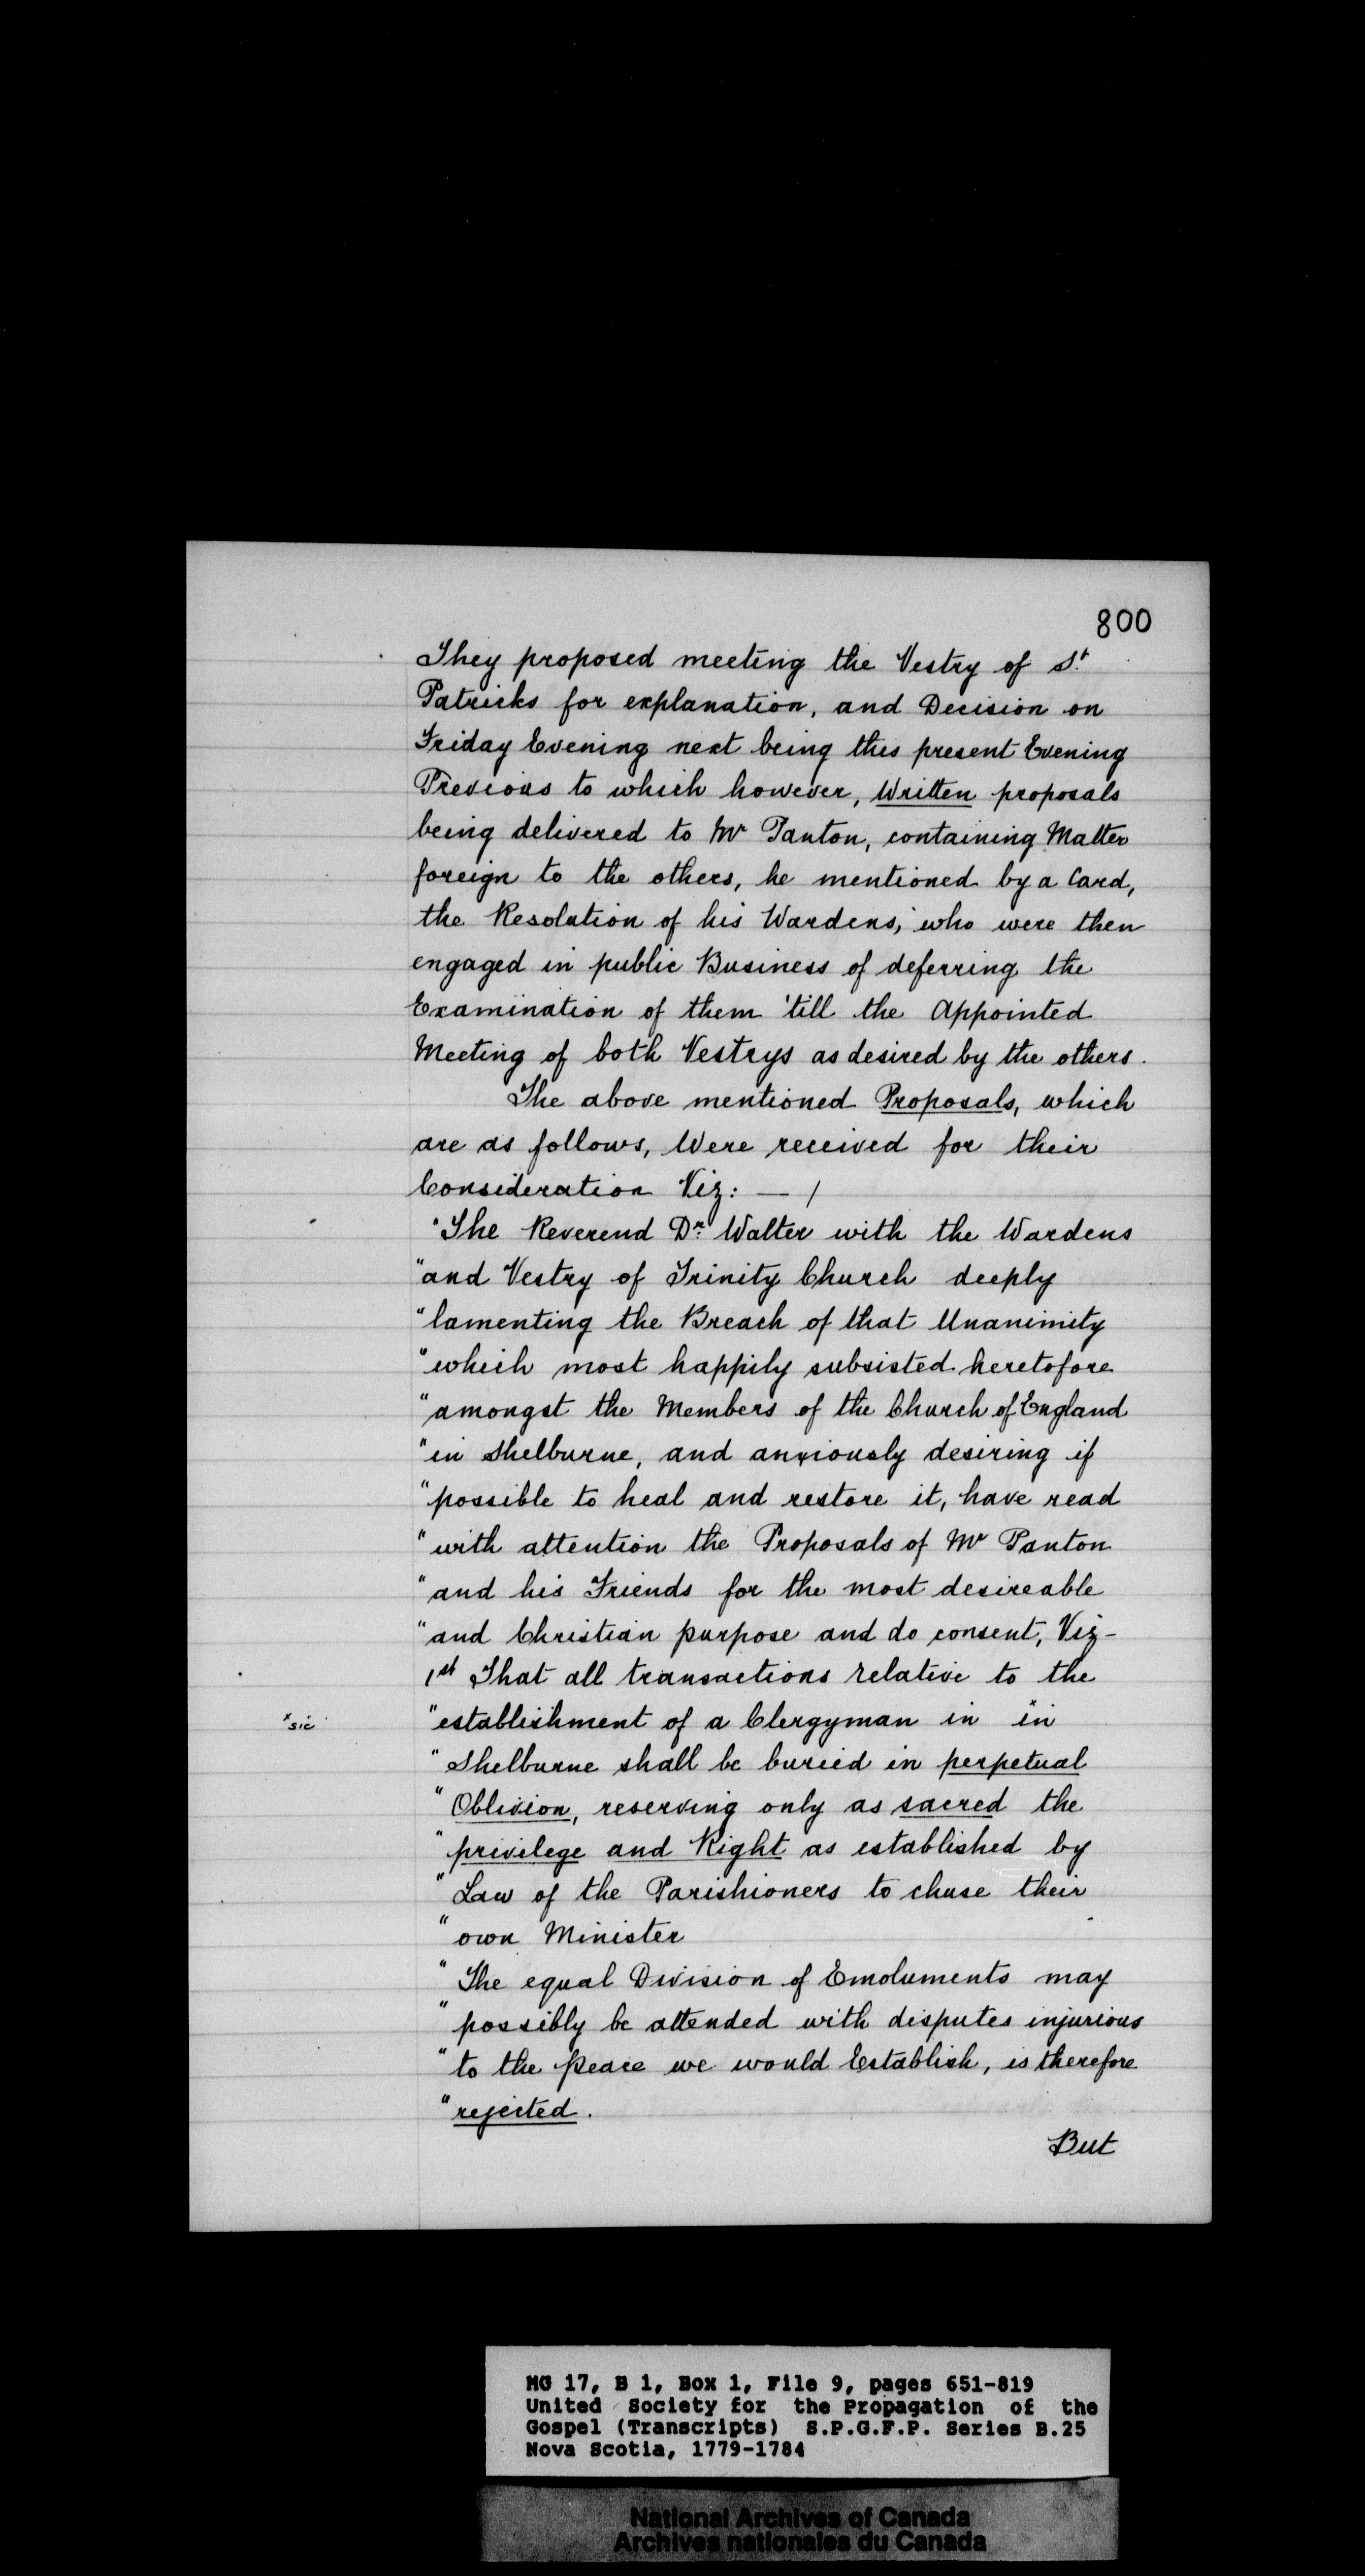 800
They proposed meeting the Vestry of St
Patricks for explanation, and Decision on
Friday Evening next being this present Evening
Previous to which however, Written proposals
being delivered to Mr Panton, containing Matter
foreign to the others, he mentioned by a Card,
the Resolution of his Wardens, who were then
engaged in public Business of deferring the
Examination of them 'till the Appointed
Meeting of both Vestrys as desired by the others.
The above mentioned Proposals, which
are as follows, Were received for their
Consideration Viz: — /
"The Reverend Dr Walter with the Wardens
"and Vestry of Trinity Church deeply
"lamenting the Breach of that Unanimity
"which most happily subsisted heretofore
"amongst the Members of the Church of England
"in Shelburne, and anxiously desiring if
"possible to heal and restore it, have read
"with attention the Proposals of Mr Panton
"and his Friends for the most desireable
"and Christian purpose and do consent, Viz-
1st That all transactions relative to the
x sic "establishment of a Clergyman in xin
"Shelburne shall be buried in perpetual
"Oblivion, reserving only as sacred the
"privilege and Right as established by
"Law of the Parishioners to chuse their
"own Minister
"The equal Division of Emoluments may
"possibly be attended with disputes injurious
"to the Peace we would Establish, is therefore
"rejected.
But
MG 17, B 1, Box 1, File 9, pages 651-819
United Society for the Propagation of the
Gospel (Transcripts) S.P.G.F.P. Series B.25
Nova Scotia, 1779-1784
National Archives of Canada
Archives nationales du Canada